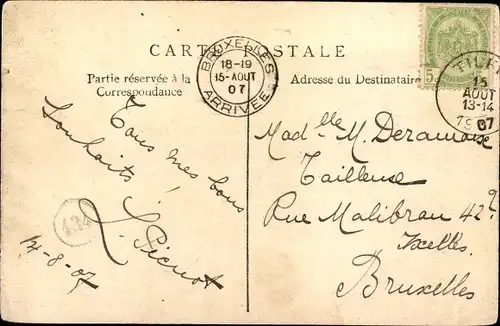 CARTE POSTALE
Partie réservée à la
Correspondance
Adresse du Destinataire
BRUXELLES
18-19
15-AOUT
07
ARRIVÉE
5c
TILF
15
AOUT
13-14
1907
Tous mes bons
souhaits !
L. Picnot
14-8-07
Madlle M. Deramaise
Tailleuse
Rue Malibran 42
Ixelles.
Bruxelles